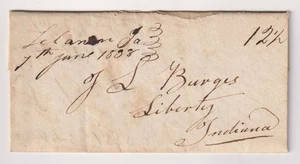 Lebanon Ia
7th June 1838
12½
J L Burges
Liberty
Indiana